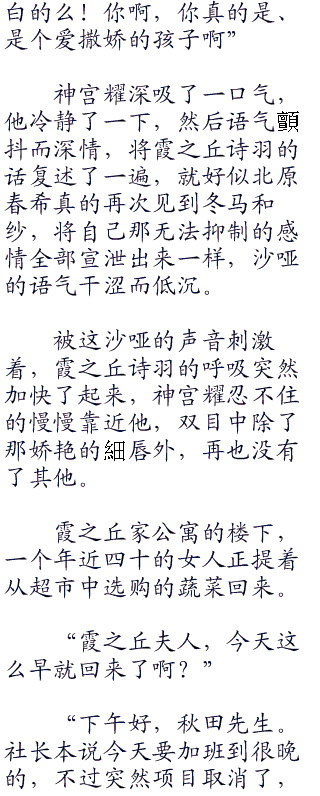 白的么！你啊，你真的是、
是个爱撒娇的孩子啊”
神宫耀深吸了一口气，
他冷静了一下，然后语气顫
抖而深情，将霞之丘诗羽的
话复述了一遍，就好似北原
春希真的再次见到冬马和
纱，将自己那无法抑制的感
情全部宣泄出来一样，沙哑
的语气干涩而低沉。
被这沙哑的声音刺激
着，霞之丘诗羽的呼吸突然
加快了起来，神宫耀忍不住
的慢慢靠近他，双目中除了
那娇艳的細唇外，再也没有
了其他。
霞之丘家公寓的楼下，
一个年近四十的女人正提着
从超市中选购的蔬菜回来。
“霞之丘夫人，今天这
么早就回来了啊？”
“下午好，秋田先生。
社长本说今天要加班到很晚
的，不过突然项目取消了，